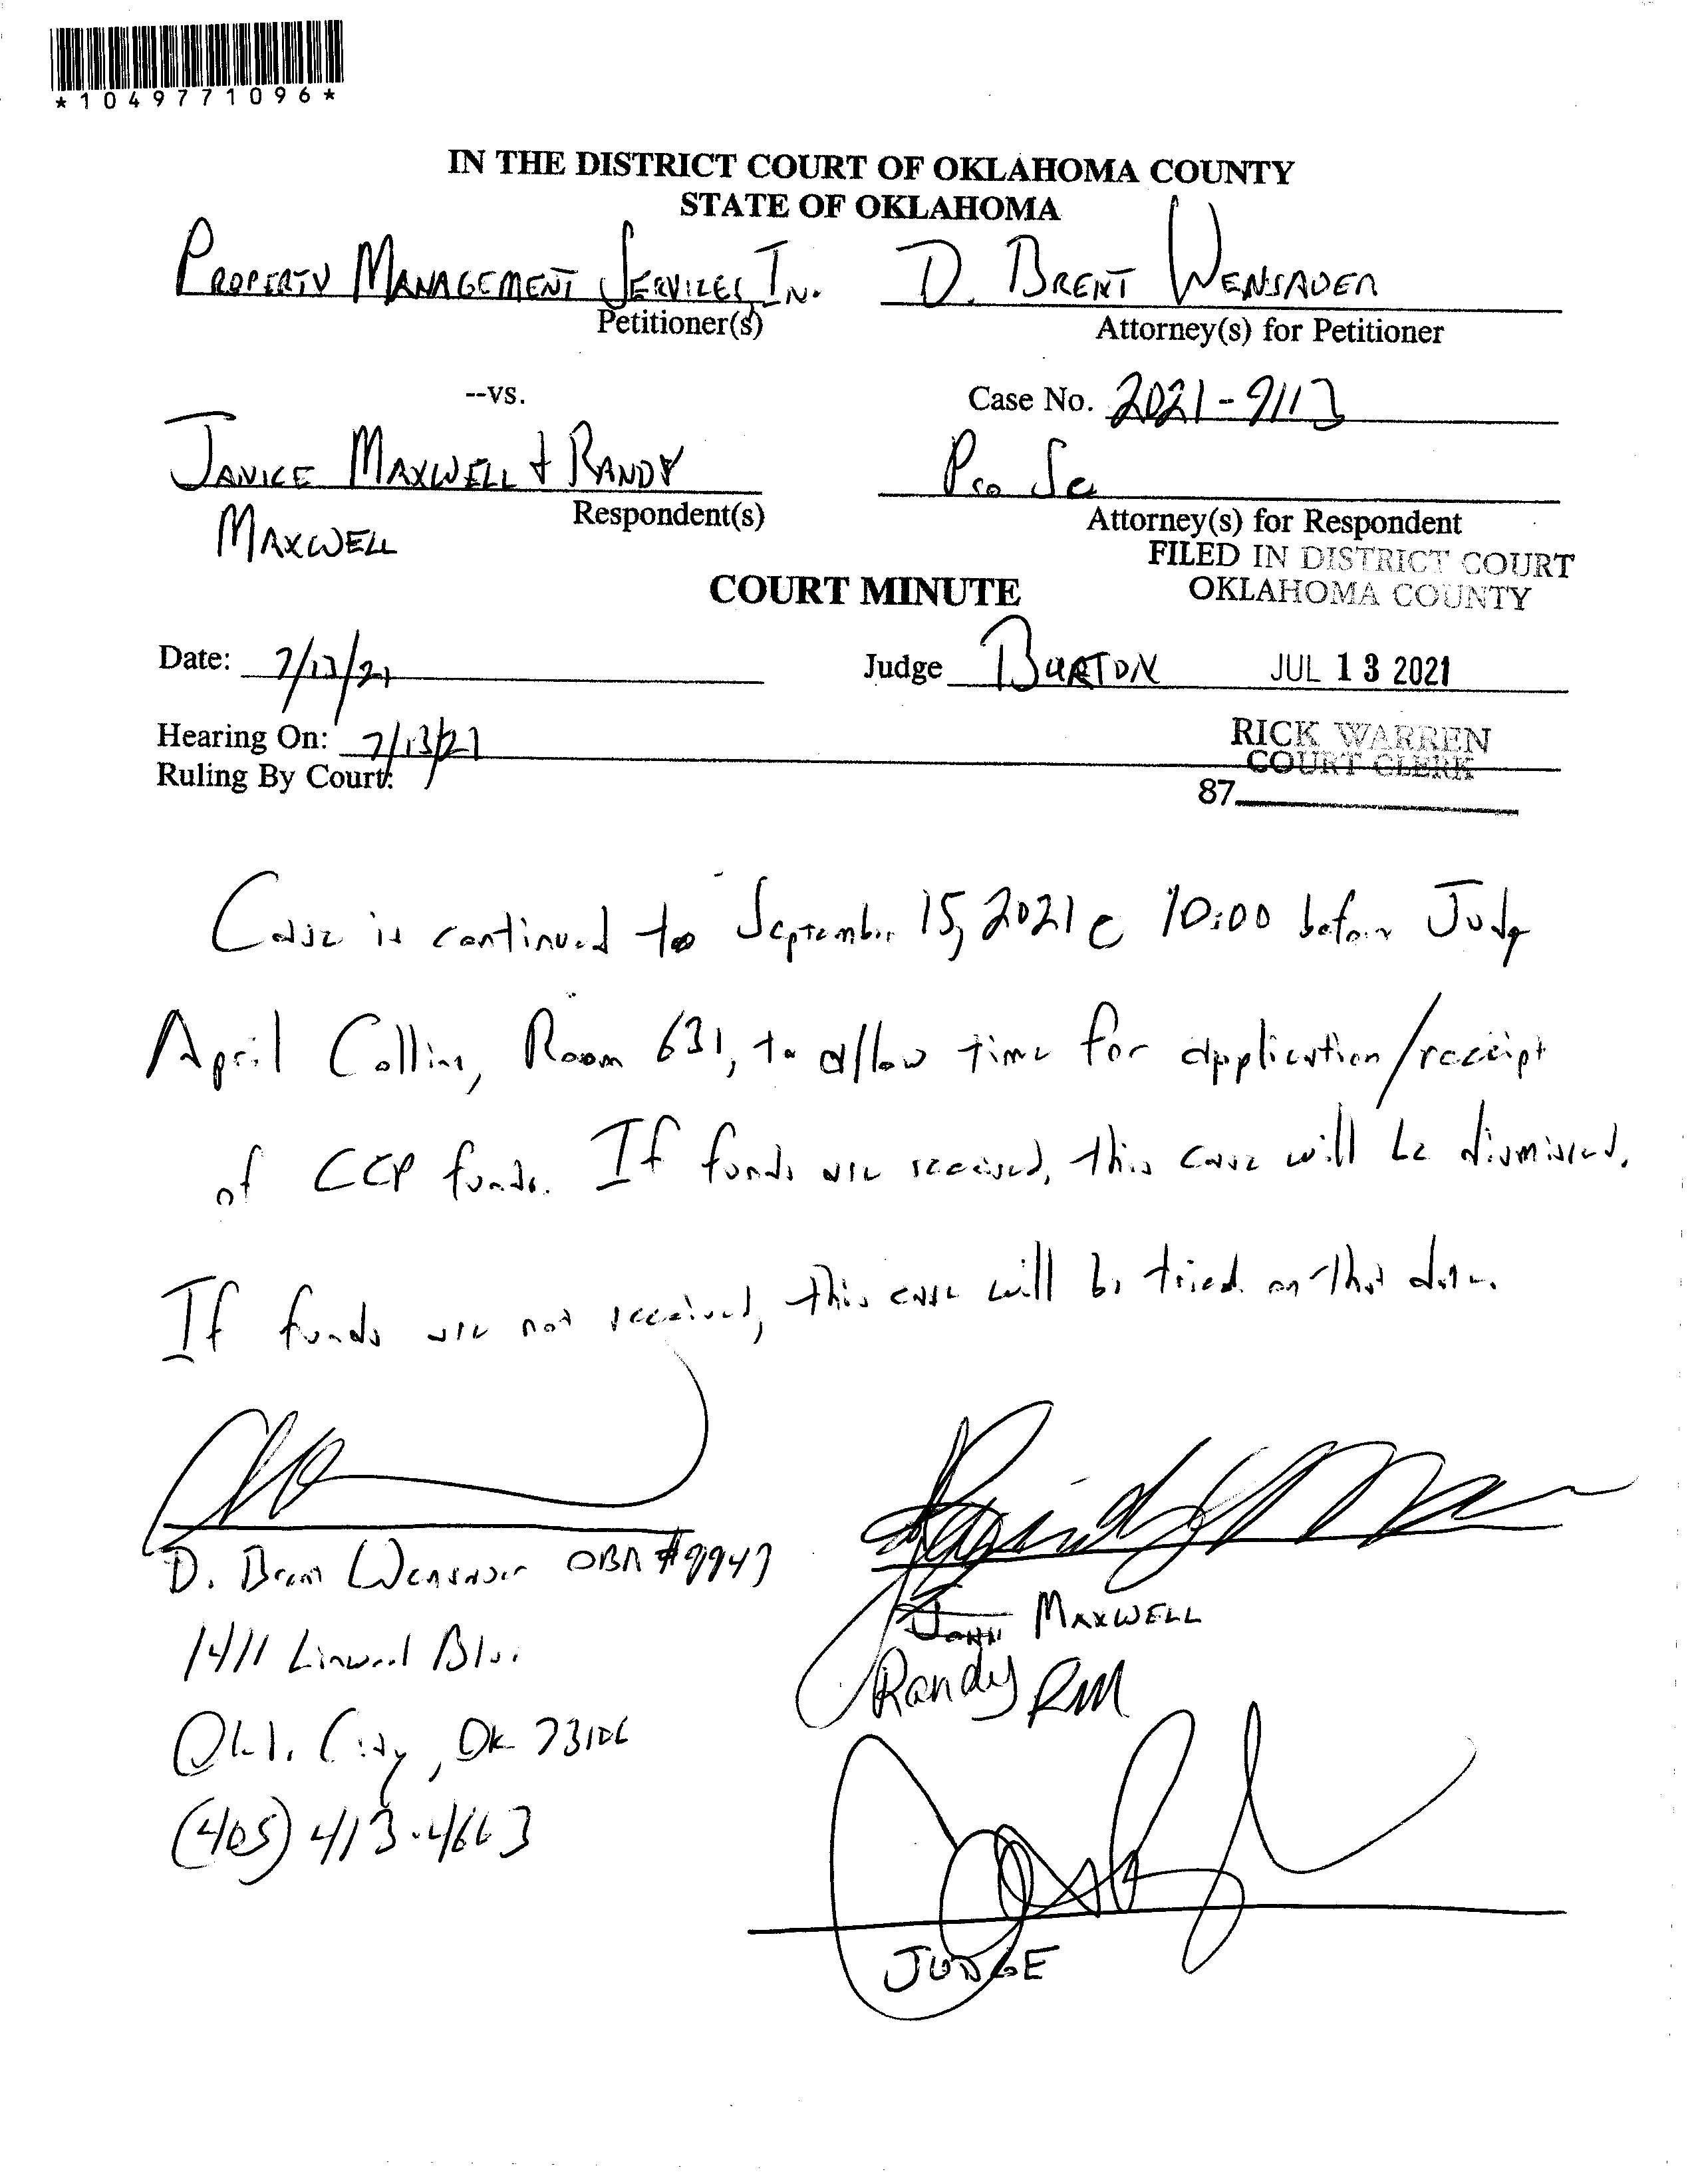 *1049771096*
IN THE DISTRICT COURT OF OKLAHOMA COUNTY
STATE OF OKLAHOMA
PROPERTY MANAGEMENT SERVICES, IN. D. BRENT WENSAUER
Petitioner(s) Attorney(s) for Petitioner
--vs. Case No. 2021-9113
JANICE MAXWELL & RANDY Pro Se
MAXWELL Respondent(s) Attorney(s) for Respondent
FILED IN DISTRICT COURT
COURT MINUTE OKLAHOMA COUNTY
Date: 7/13/21 Judge BURTON JUL 13 2021
Hearing On: 7/13/21 RICK WARREN
COURT CLERK
Ruling By Court:
87
Case is continued to September 15, 2021 @ 10:00 before Judge
April Collins, Room 631, to allow time for application/receipt
of CCP funds. If funds are received, this case will be dismissed.
If funds are not received, this case will be tried on that date.
D. Brent Wensauer OBA #
JOHN MAXWELL
1411 Linwood Blv.
Randy RM
Okl. City, OK 73106
(405) 413-4663
JUDGE